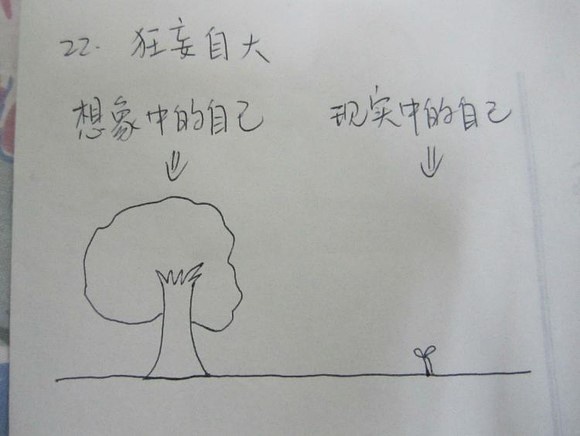 22. 狂妄自大
想象中的自己 现实中的自己